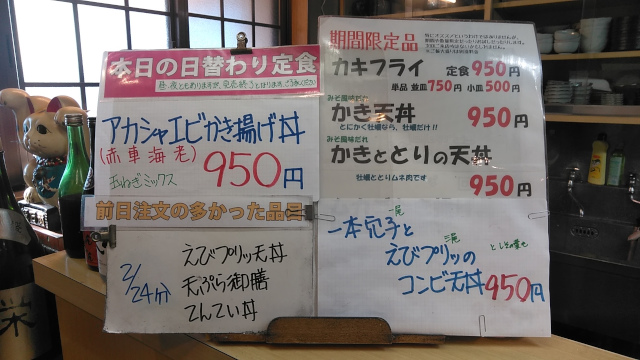 本日の日替わり定食
昼・夜ともありますが、完売終了となります。ご了承ください
アカシャエビかき揚げ丼
(赤車海老)
玉ねぎミックス
950円
前日注文の多かった品
2/24分
えびプリッ天丼
天ぷら御膳
てんてい丼
期間限定品
カキフライ 定食950円
単品 並皿750円 小皿500円
みそ風味だれ
かき天丼 950円
とにかく牡蠣なら、牡蠣だけ!!
みそ風味だれ
かきととりの天丼
牡蠣ととりムネ肉です
950円
一本穴子と
えびプリッの
コンビ天丼950円